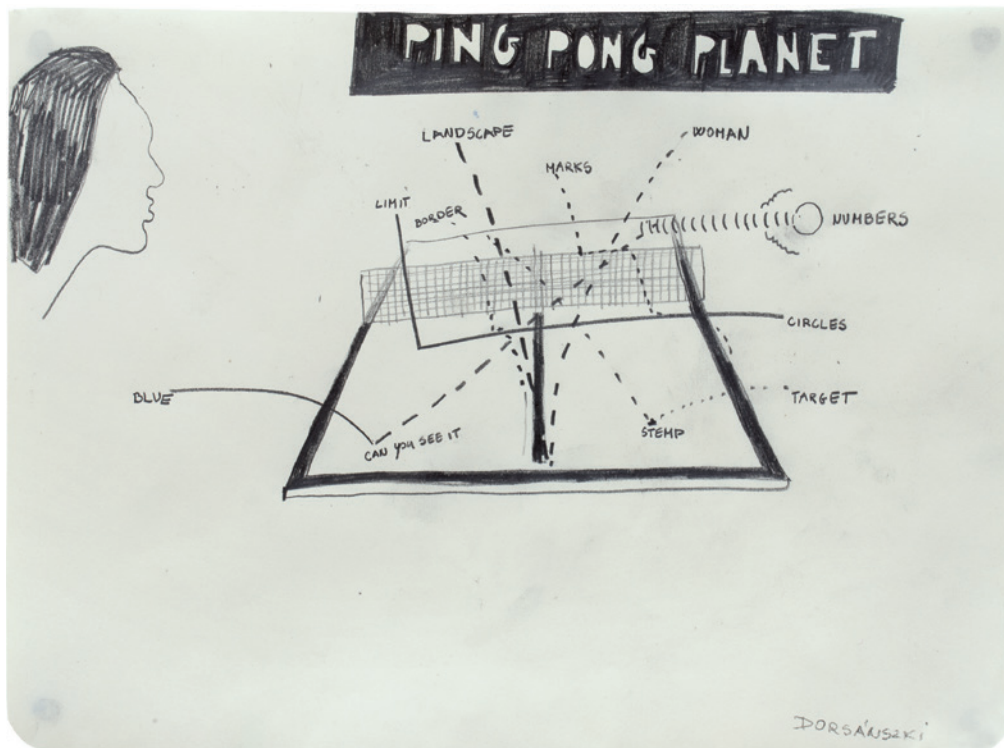 PING PONG PLANET
LANDSCAPE
WOMAN
MARKS
LIMIT
BORDER
NUMBERS
CIRCLES
BLUE
TARGET
STEMP
CAN YOU SEE IT
DORSÁNSZKI